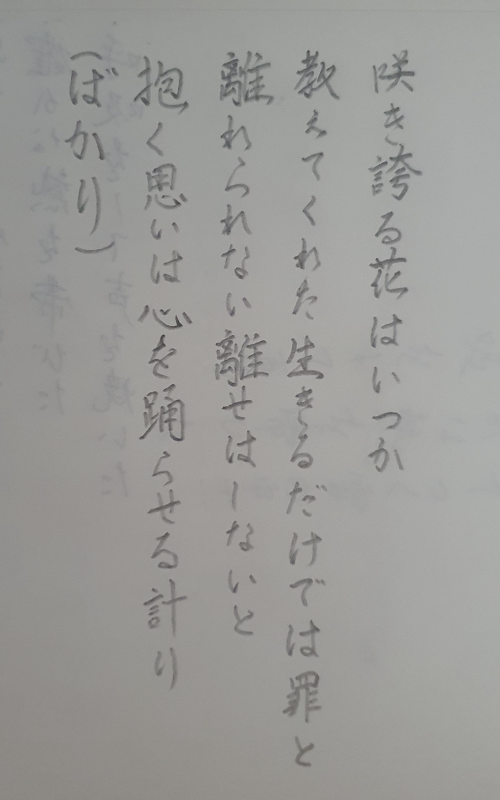 咲き誇る花はいつか
教えてくれた生きるだけでは罪と
離れられない離せはしないと
抱く思いは心を踊らせる計り
(ばかり)